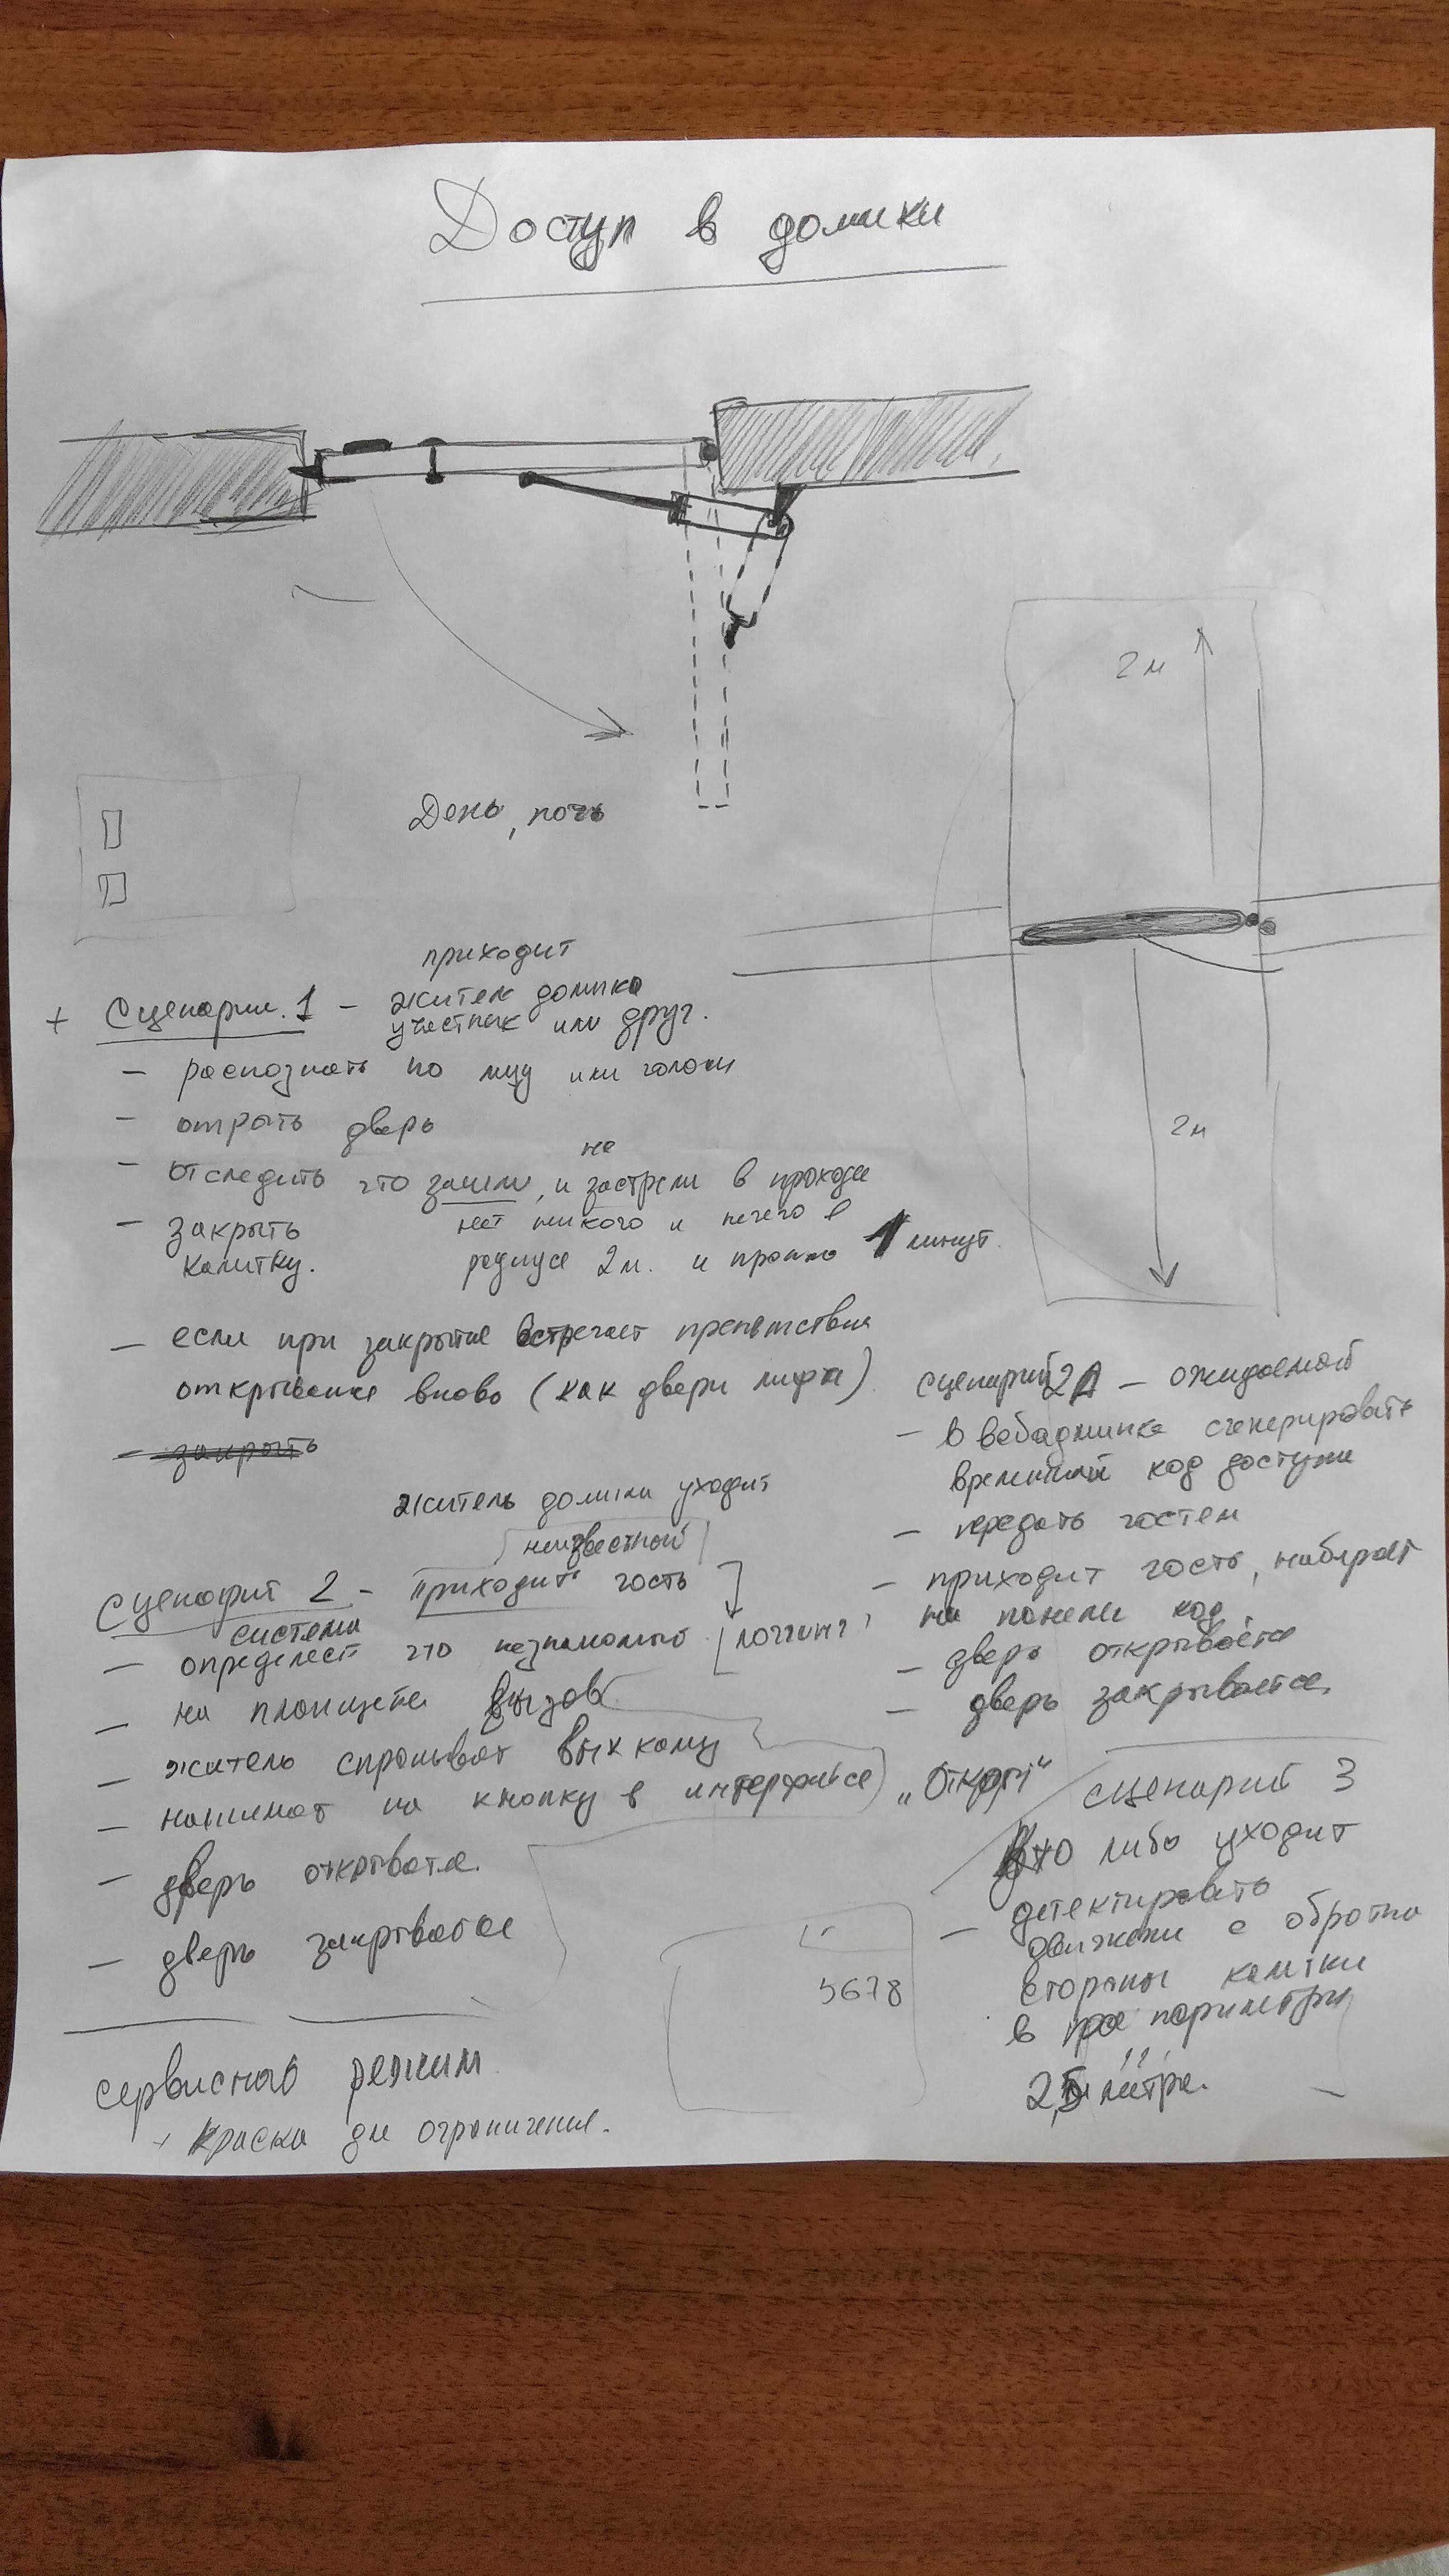 Доступ в домики
2м
День, ночь
2м
приходит
+ Сценарий.1 – житель домика
участник или друг.
– распознать по лицу или голосу
– открыть дверь
не
– отследить что зашли, и застрели в проходе
– закрыть калитку.
нет никого и нечего в
радиусе 2м. и прошло 1 минут.
– если при закрытие встречает препятствия
открывание вновь (как двери лифта)
– закрыть
житель домика уходит
неизвестный
Сценарий 2 – приходит гость
система
– определяет что незнакомый
логгинг
– на планшете вызов
– житель спрашивает вы к кому
– нажимает на кнопку в интерфейсе „Открыть“
– дверь открывается.
– дверь закрывается
сценарий 2А – ожидаемый
– в вебадминке сгенерировать
временный код доступа
– передать гостем
– приходит гость, набирает
на панели код
– дверь открывается
– дверь закрывается.
сценарий 3
Кто либо уходит
– детектировать
движение с обратной
стороны калитки
в периметры
2,5 метра.
5678
сервисный режим
+ краска для ограничения.